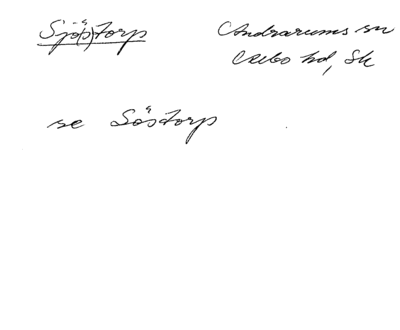 Sjö(s)torp
Andrarums sn
Albo hd, Sk
se Söstorp